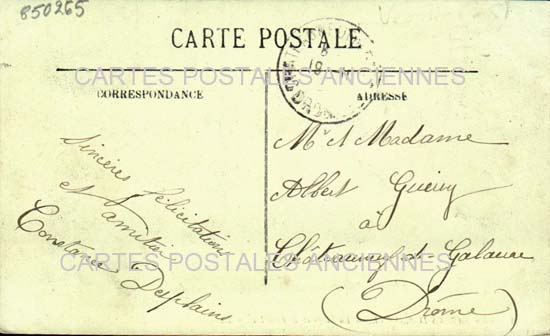 850265
CARTE POSTALE
CARTES POSTALES ANCIENNES
CORRESPONDANCE
ADRESSE
Sincères félicitations
et amitiés
Constance Desplains
Mr et Madame
Albert Guerry
à
Châteauneuf-de-Galaure
(Drôme)
CARTES POSTALES ANCIENNES